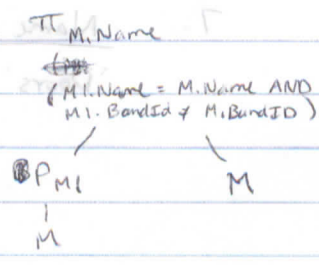 π M.Name
(M1.Name = M.Name AND
M1.BandId ≠ M.BandID)
ρ M1 M
M